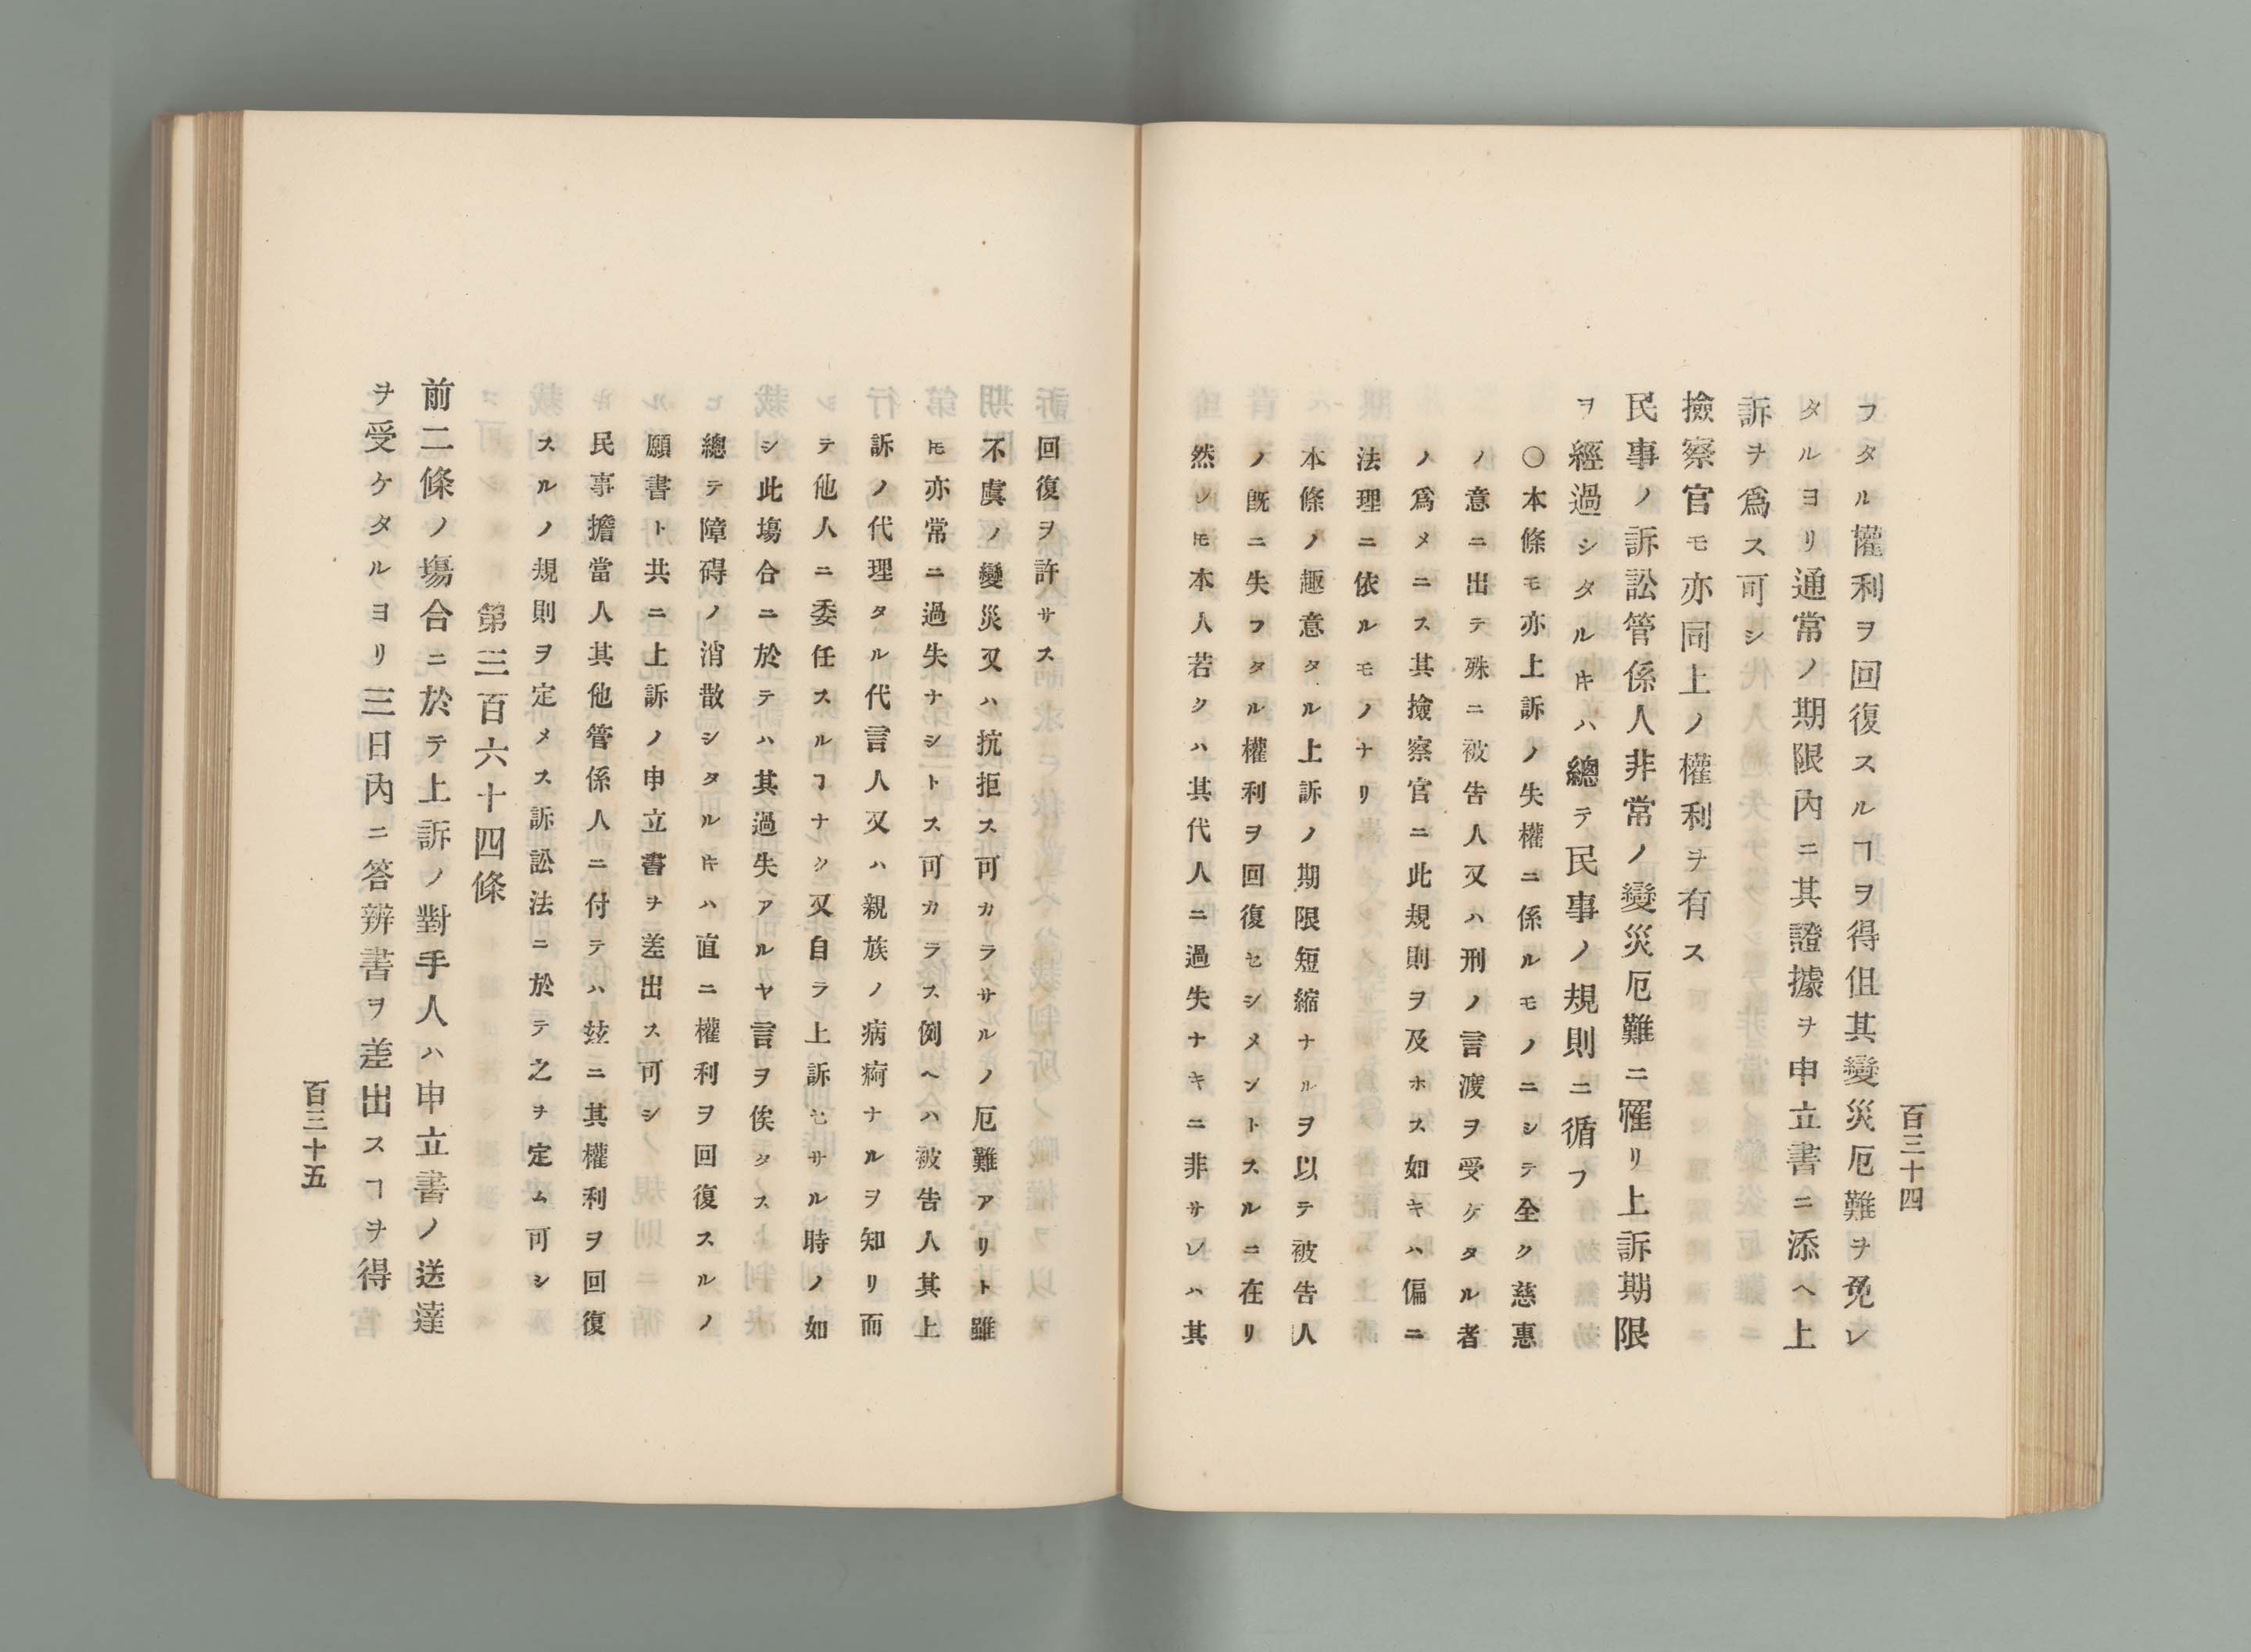 百三十四
フタル權利ヲ回復スルヿヲ得但其變災厄難ヲ免レ
タルヨリ通常ノ期限內ニ其證據ヲ申立書ニ添ヘ上
訴ヲ爲ス可シ
撿察官モ亦同上ノ權利ヲ有ス
民事ノ訴訟管係人非常ノ變災厄難ニ罹リ上訴期限
ヲ經過シタルキハ總テ民事ノ規則ニ循フ
〇本條モ亦上訴ノ失權ニ係ルモノニシテ全ク慈惠
ノ意ニ出テ殊ニ被告人又ハ刑ノ言渡ヲ受ケタル者
ノ爲メニス其撿察官ニ此規則ヲ及ホス如キハ偏ニ
法理ニ依ルモノナリ
本條ノ趣意タル上訴ノ期限短縮ナルヲ以テ被告人
ノ既ニ失フタル權利ヲ回復セシメントスルニ在リ
然シ𪜈本人若クハ其代人ニ過失ナキニ非サレハ其
回復ヲ許サス
不虞ノ變災又ハ抗拒ス可カラサルノ厄難アリト雖
𪜈亦常ニ過失ナシトス可カラス例ヘハ被告人其上
訴ノ代理タル代言人又ハ親族ノ病痾ナルヲ知リ而
テ他人ニ委任スルヿナク又自ラ上訴セサル時ノ如
シ此塲合ニ於テハ其過失アルカヤ言ヲ俟タス
總テ障碍ノ消散シタルキハ直ニ權利ヲ回復スルノ
願書ト共ニ上訴ノ申立書ヲ差出ス可シ
民事擔當人其他管係人ニ付テハ玆ニ其權利ヲ回復
スルノ規則ヲ定メス訴訟法ニ於テ之ヲ定ム可シ
第三百六十四條
前二條ノ塲合ニ於テ上訴ノ對手人ハ申立書ノ送達
ヲ受ケタルヨリ三日內ニ答辨書ヲ差出スヿヲ得
百三十五